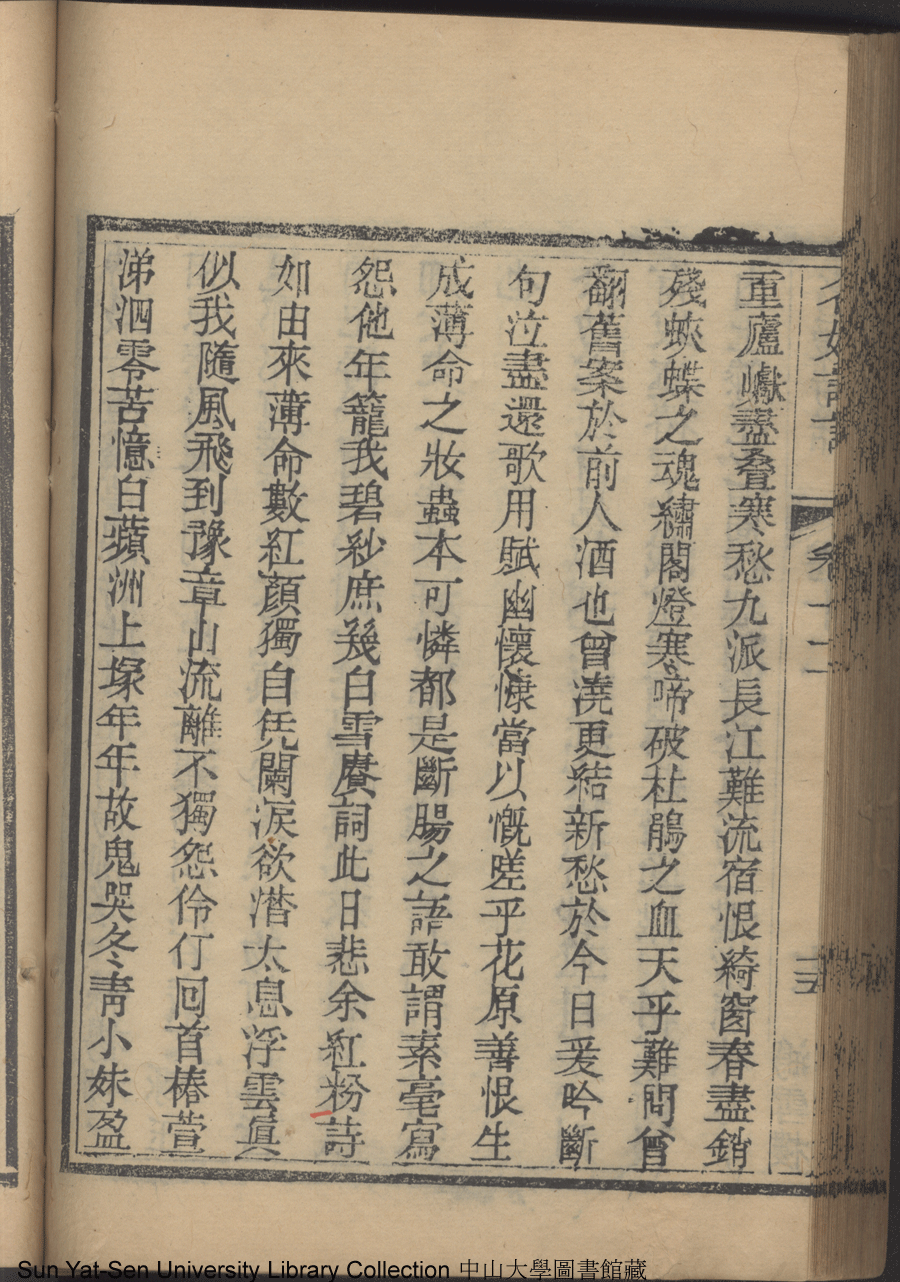 名媛詩話 卷十二 十五
重廬巘盡叠寒愁九派長江難流宿恨綺窗春盡銷
殘蛺蝶之魂繡閣燈寒啼破杜鵑之血天乎難問曾
翻舊案於前人酒也曾澆更結新愁於今日爰吟斷
句泣盡還歌用賦幽懷慷當以慨嗟乎花原善恨生
成薄命之妝蟲本可憐都是斷腸之語敢謂素毫寫
怨他年籠我碧紗庶幾白雪賡詞此日悲余紅粉詩
如由來薄命數紅顏獨自凭闌淚欲潸太息浮雲眞
似我隨風飛到豫章山流離不獨怨伶仃回首椿萱
涕泗零苦憶白蘋洲上塚年年故鬼哭冬靑小妹盈
Sun Yat-Sen University Library Collection 中山大學圖書館藏